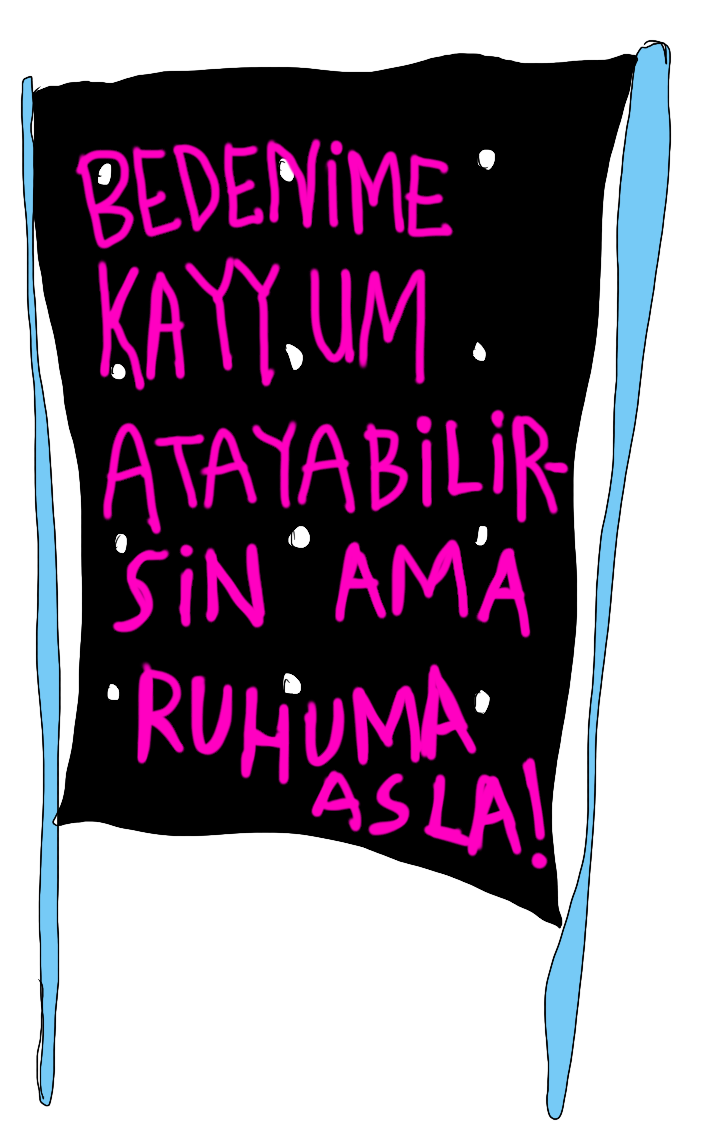 BEDENİME
KAYYUM
ATAYABİLİR-
SİN AMA
RUHUMA
ASLA!